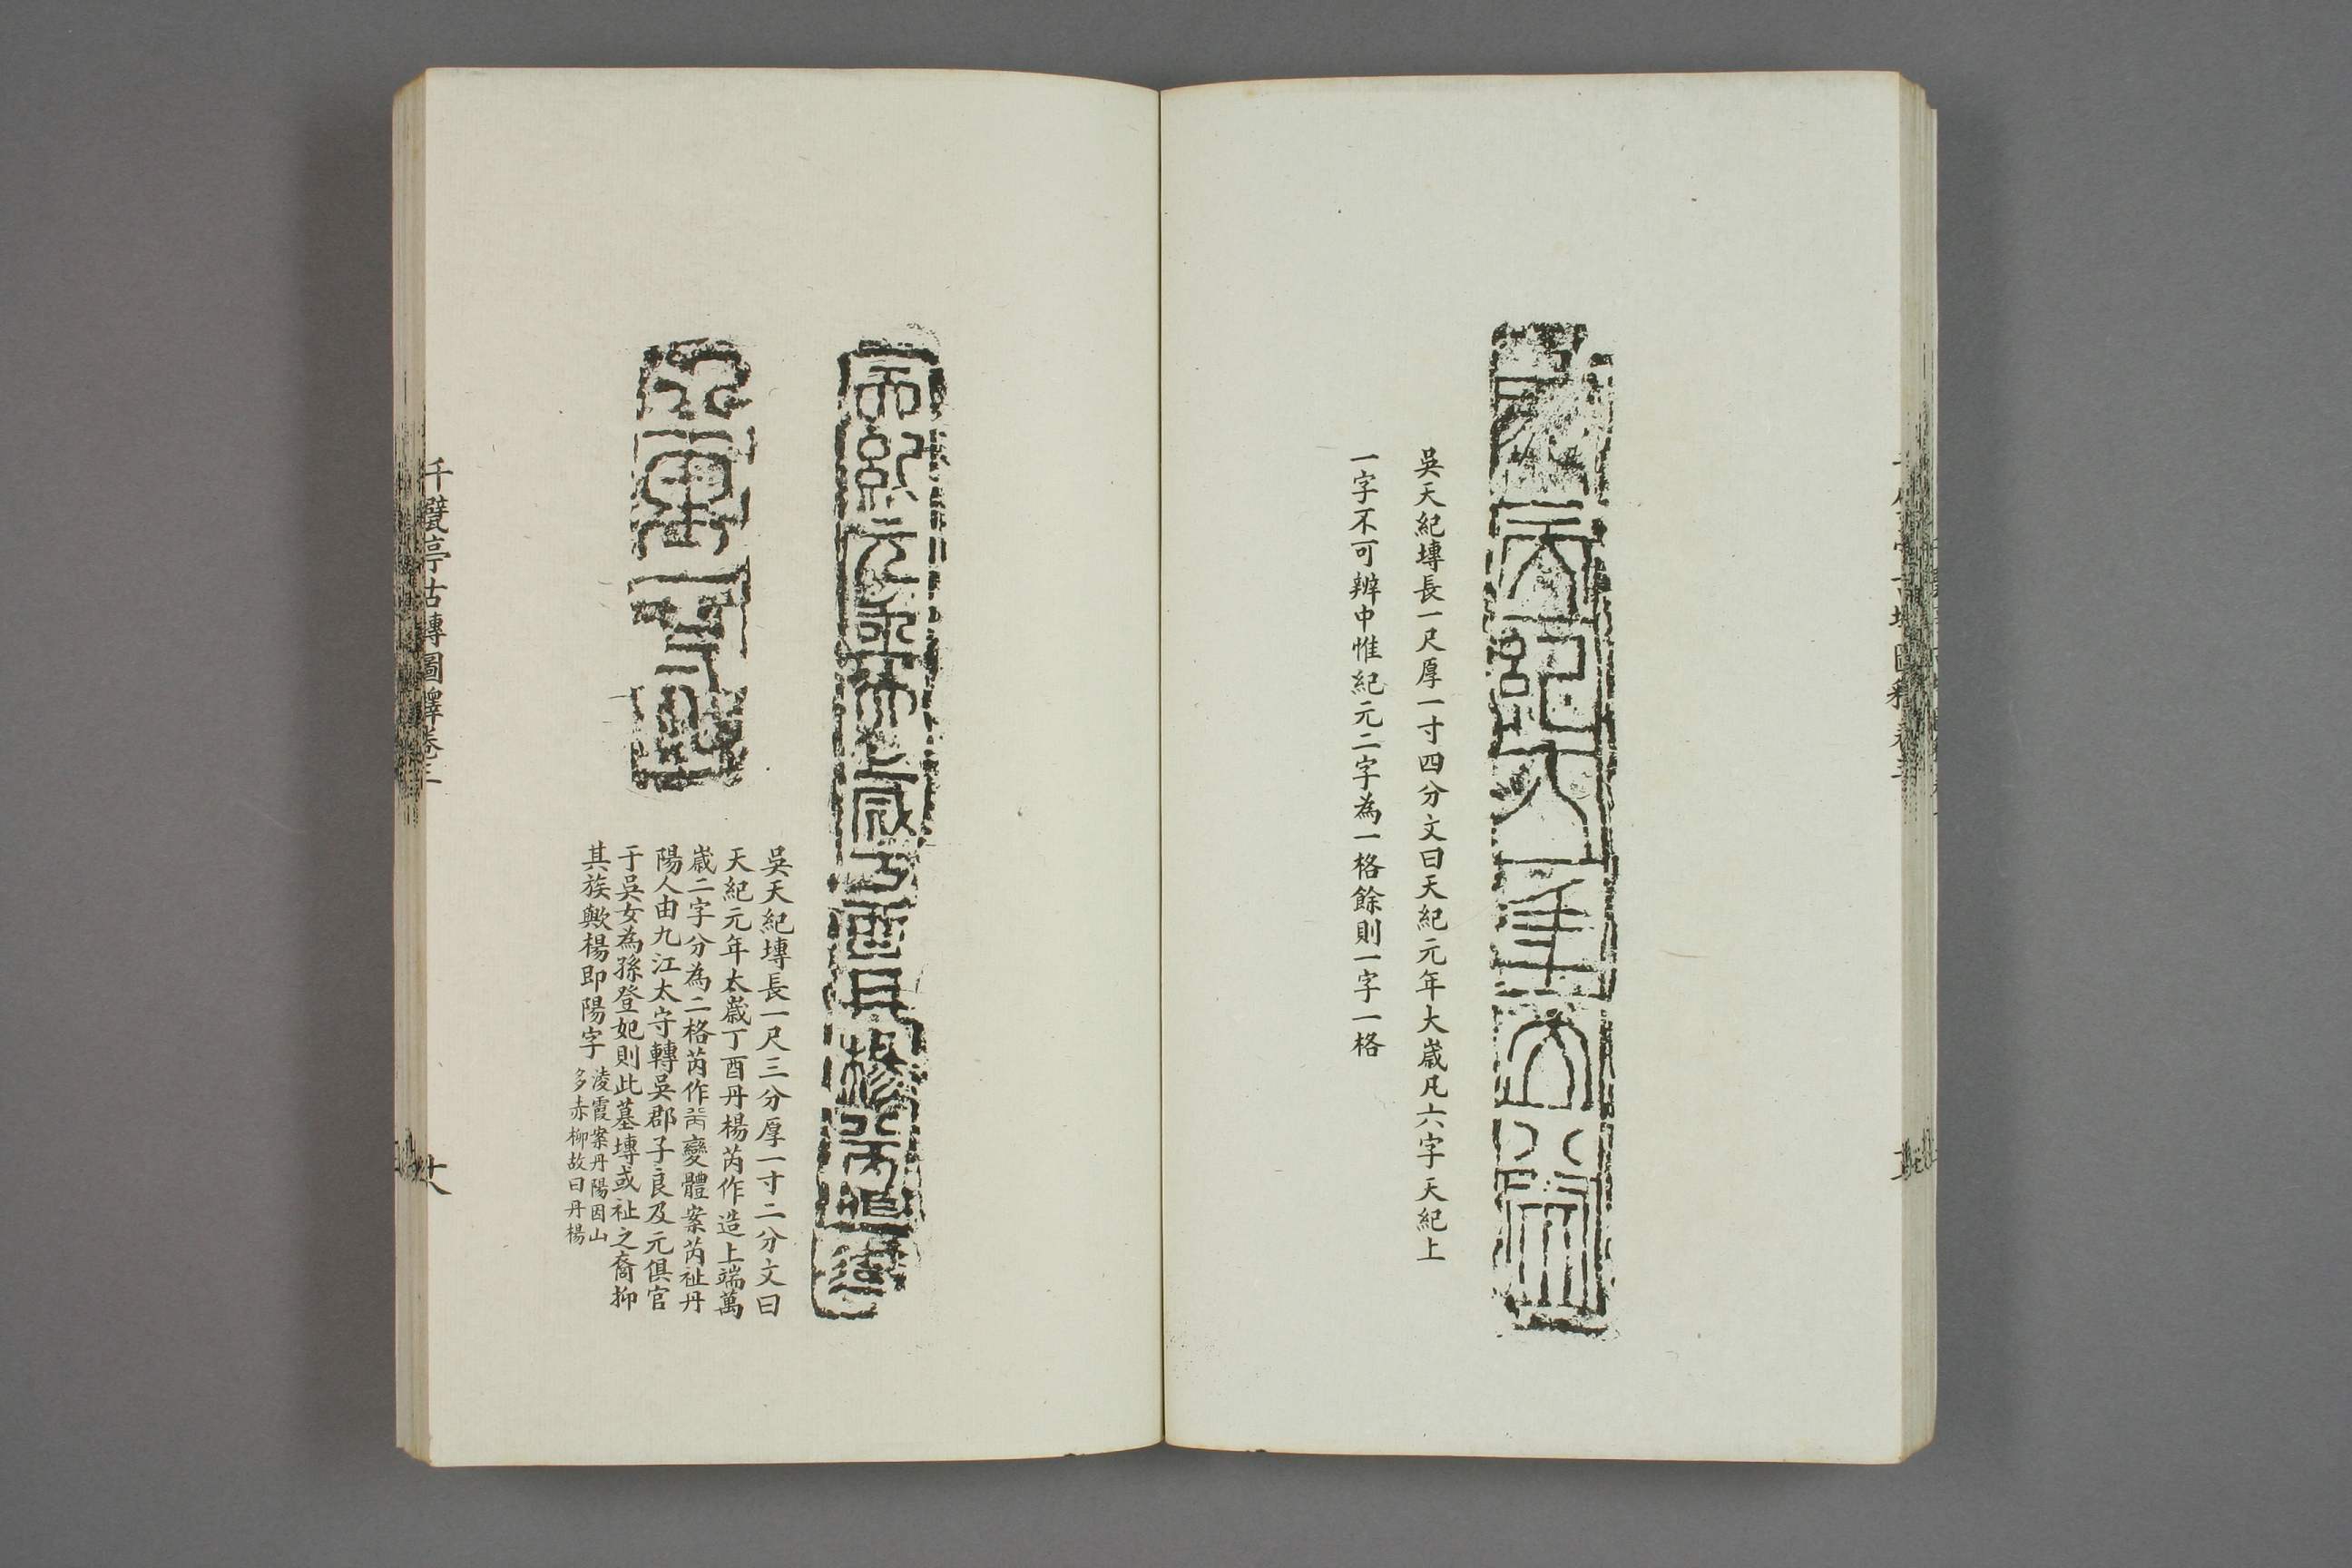 吳天紀塼長一尺厚一寸四分文曰天紀元年大嵗凡六字天紀上
一字不可辨中惟紀元二字為一格餘則一字一格
吳天紀塼長一尺三分厚一寸二分文曰
天紀元年太嵗丁酉丹楊芮作造上端萬
嵗二字分為二格芮作變體案芮祉丹
陽人由九江太守轉吳郡子良及元俱官
于吳女為孫登妃則此墓塼或祉之裔抑
其族歟楊即陽字
淩霞案丹陽因山
多赤柳故曰丹楊
千甓亭古塼圖釋卷三